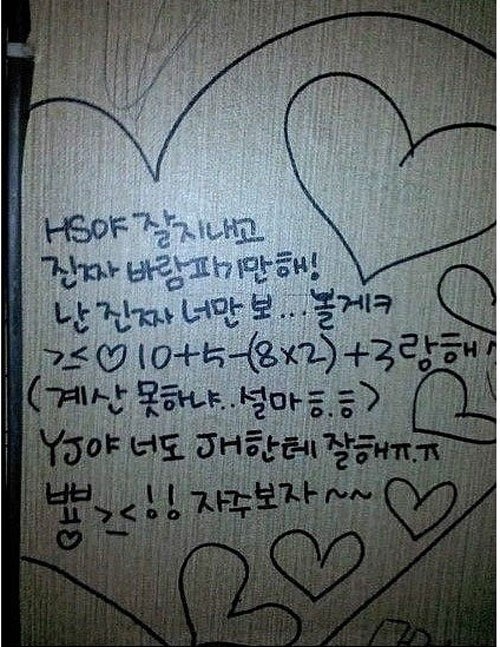 HS야 잘지내고
진짜 바람피기만해!
난 진짜 너만 보...볼게ㅋ
>≤♡10+5-(8×2)+3랑해^
(계산 못하냐..설마ㅎ.ㅎ)
YJ야 너도 JH한테 잘해ㅠ.ㅠ
뾰뵤 >≤!! 자주보자~~